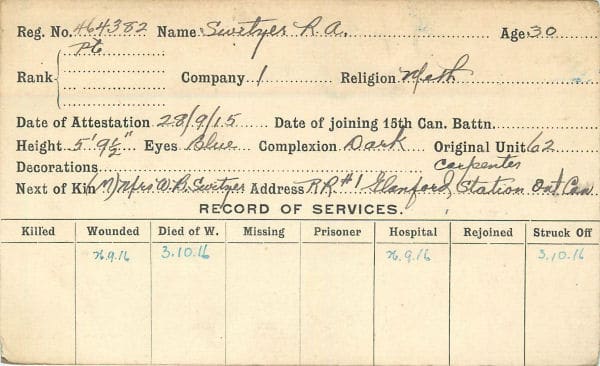 Reg. No. 464382 Name Switzer R.A. Age 30
Rank Pte Company 1 Religion Meth
Date of Attestation 28/9/15 Date of joining 15th Can. Battn.
Height 5' 9½" Eyes Blue Complexion Dark Original Unit 62
Decorations Carpenter
Next of Kin (M) Mrs W.B. Switzer Address R.R #1 Glanford Station Ont Can
RECORD OF SERVICES.
Killed Wounded Died of W. Missing Prisoner Hospital Rejoined Struck Off
26.9.16 3.10.16 26.9.16 3.10.16